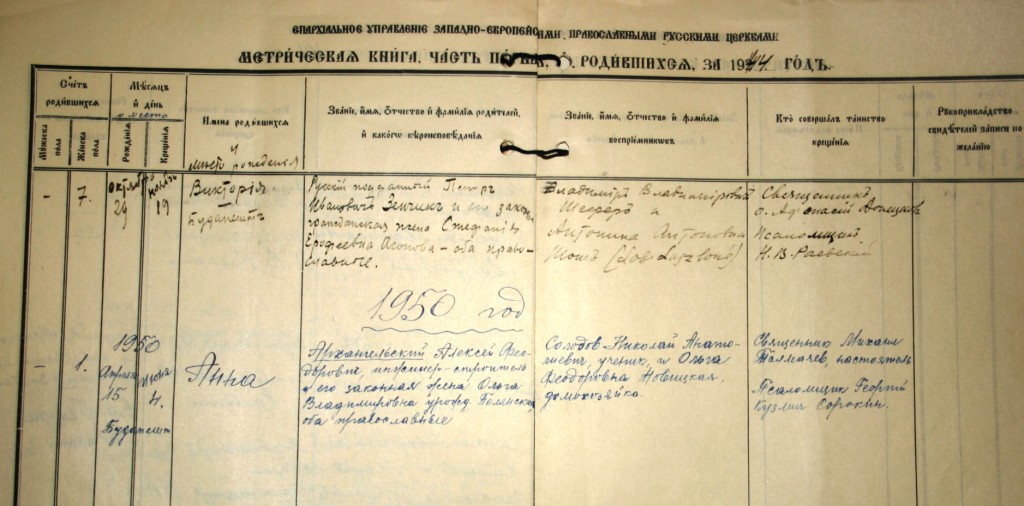 ЕПАРХІАЛЬНОЕ УПРАВЛЕНІЕ ЗАПАДНО-ЕВРОПЕЙСКИМИ ПРАВОСЛАВНЫМИ РУССКИМИ ЦЕРКВАМИ
МЕТРИЧЕСКАЯ КНИГА, ЧАСТЬ ПЕРВАЯ, О РОДИВШИХСЯ, ЗА 1944 ГОДЪ.
Счетъ родившихся
Мужеска пола
Женска пола
Мѣсяцъ и день
и место
Рожденія
Крещенія
Имена родившихся
и
место рождения
Званіе, имя, отчество и фамилія родителей,
и какого вѣроисповѣданія
Званіе, имя, отчество и фамилія
воспріемниковъ
Кто совершалъ таинство
крещенія
Рукоприкладство
свидѣтелей записи по
желанію
-
7.
октября
29
ноября
19
Викторія
Будапештъ
Русскій подданный Петръ
Ивановичъ Зенчикъ и его законная
гражданская жена Стефанія
Ерофеевна Осипова - оба право-
славные.
Владимиръ Владимировичъ
Шефферъ и
Антонина Антоновна
Священникъ
о. Афанасій
Псаломщикъ
Н. В. Раевскій
1950 год
-
1.
1950
Апреля
15
Июня
4.
Будапешт
Анна
Архангельский Алексей Фео-
дорович, инженер-строитель
и его законная жена Ольга
Владимировна урожд. Полянская
оба православные
Солодов Николай Анато-
лиевич, ученик, и Ольга
Феодоровна Новицкая,
домохозяйка.
Священник Михаил
Толмачев, настоятель
Псаломщик Георгий
Кузмич Сорокин.